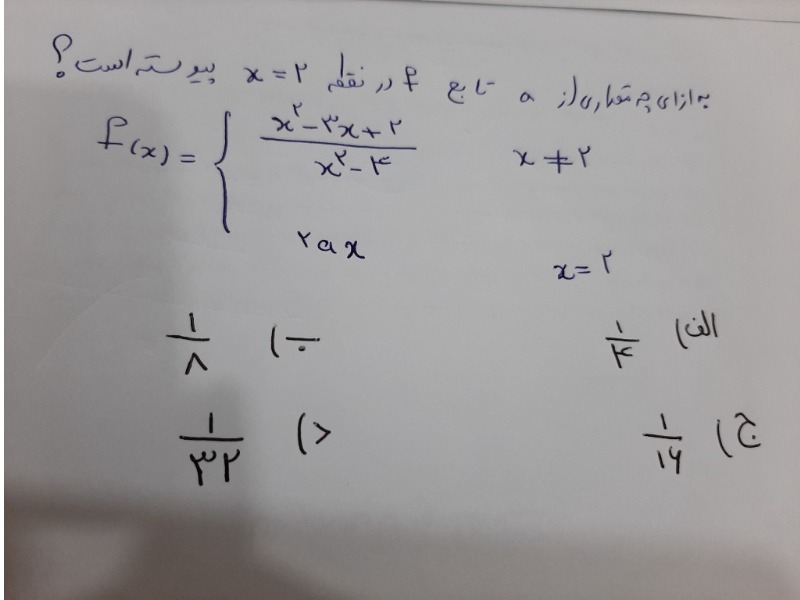 به ازای چه مقداری از a تابع f در نقطه x = ۲ پیوسته است؟
f(x) = { (x^۲ - ۳x + ۲) / (x^۲ - ۴)   x ≠ ۲
۲ax   x = ۲
الف) ۱/۴   ب) ۱/۸
ج) ۱/۱۶   د) ۱/۳۲